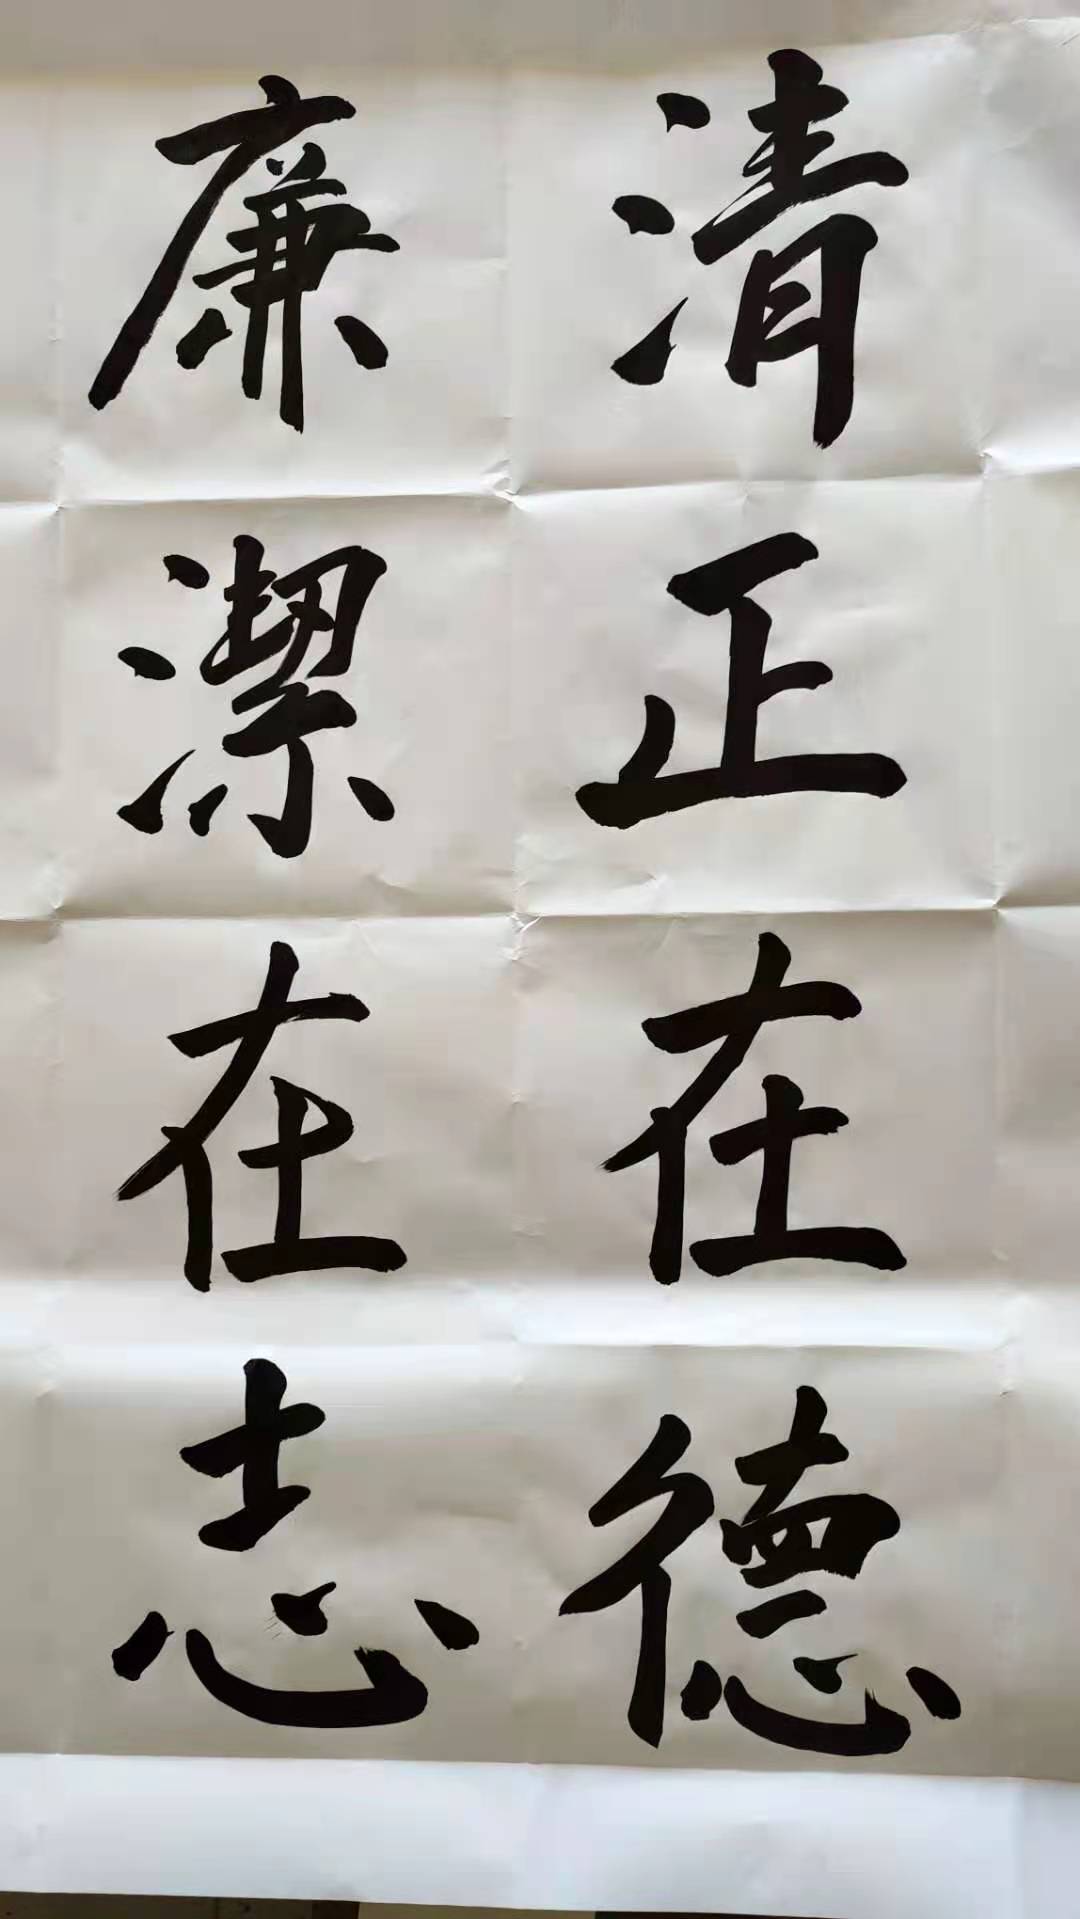 清正在德
廉潔在志